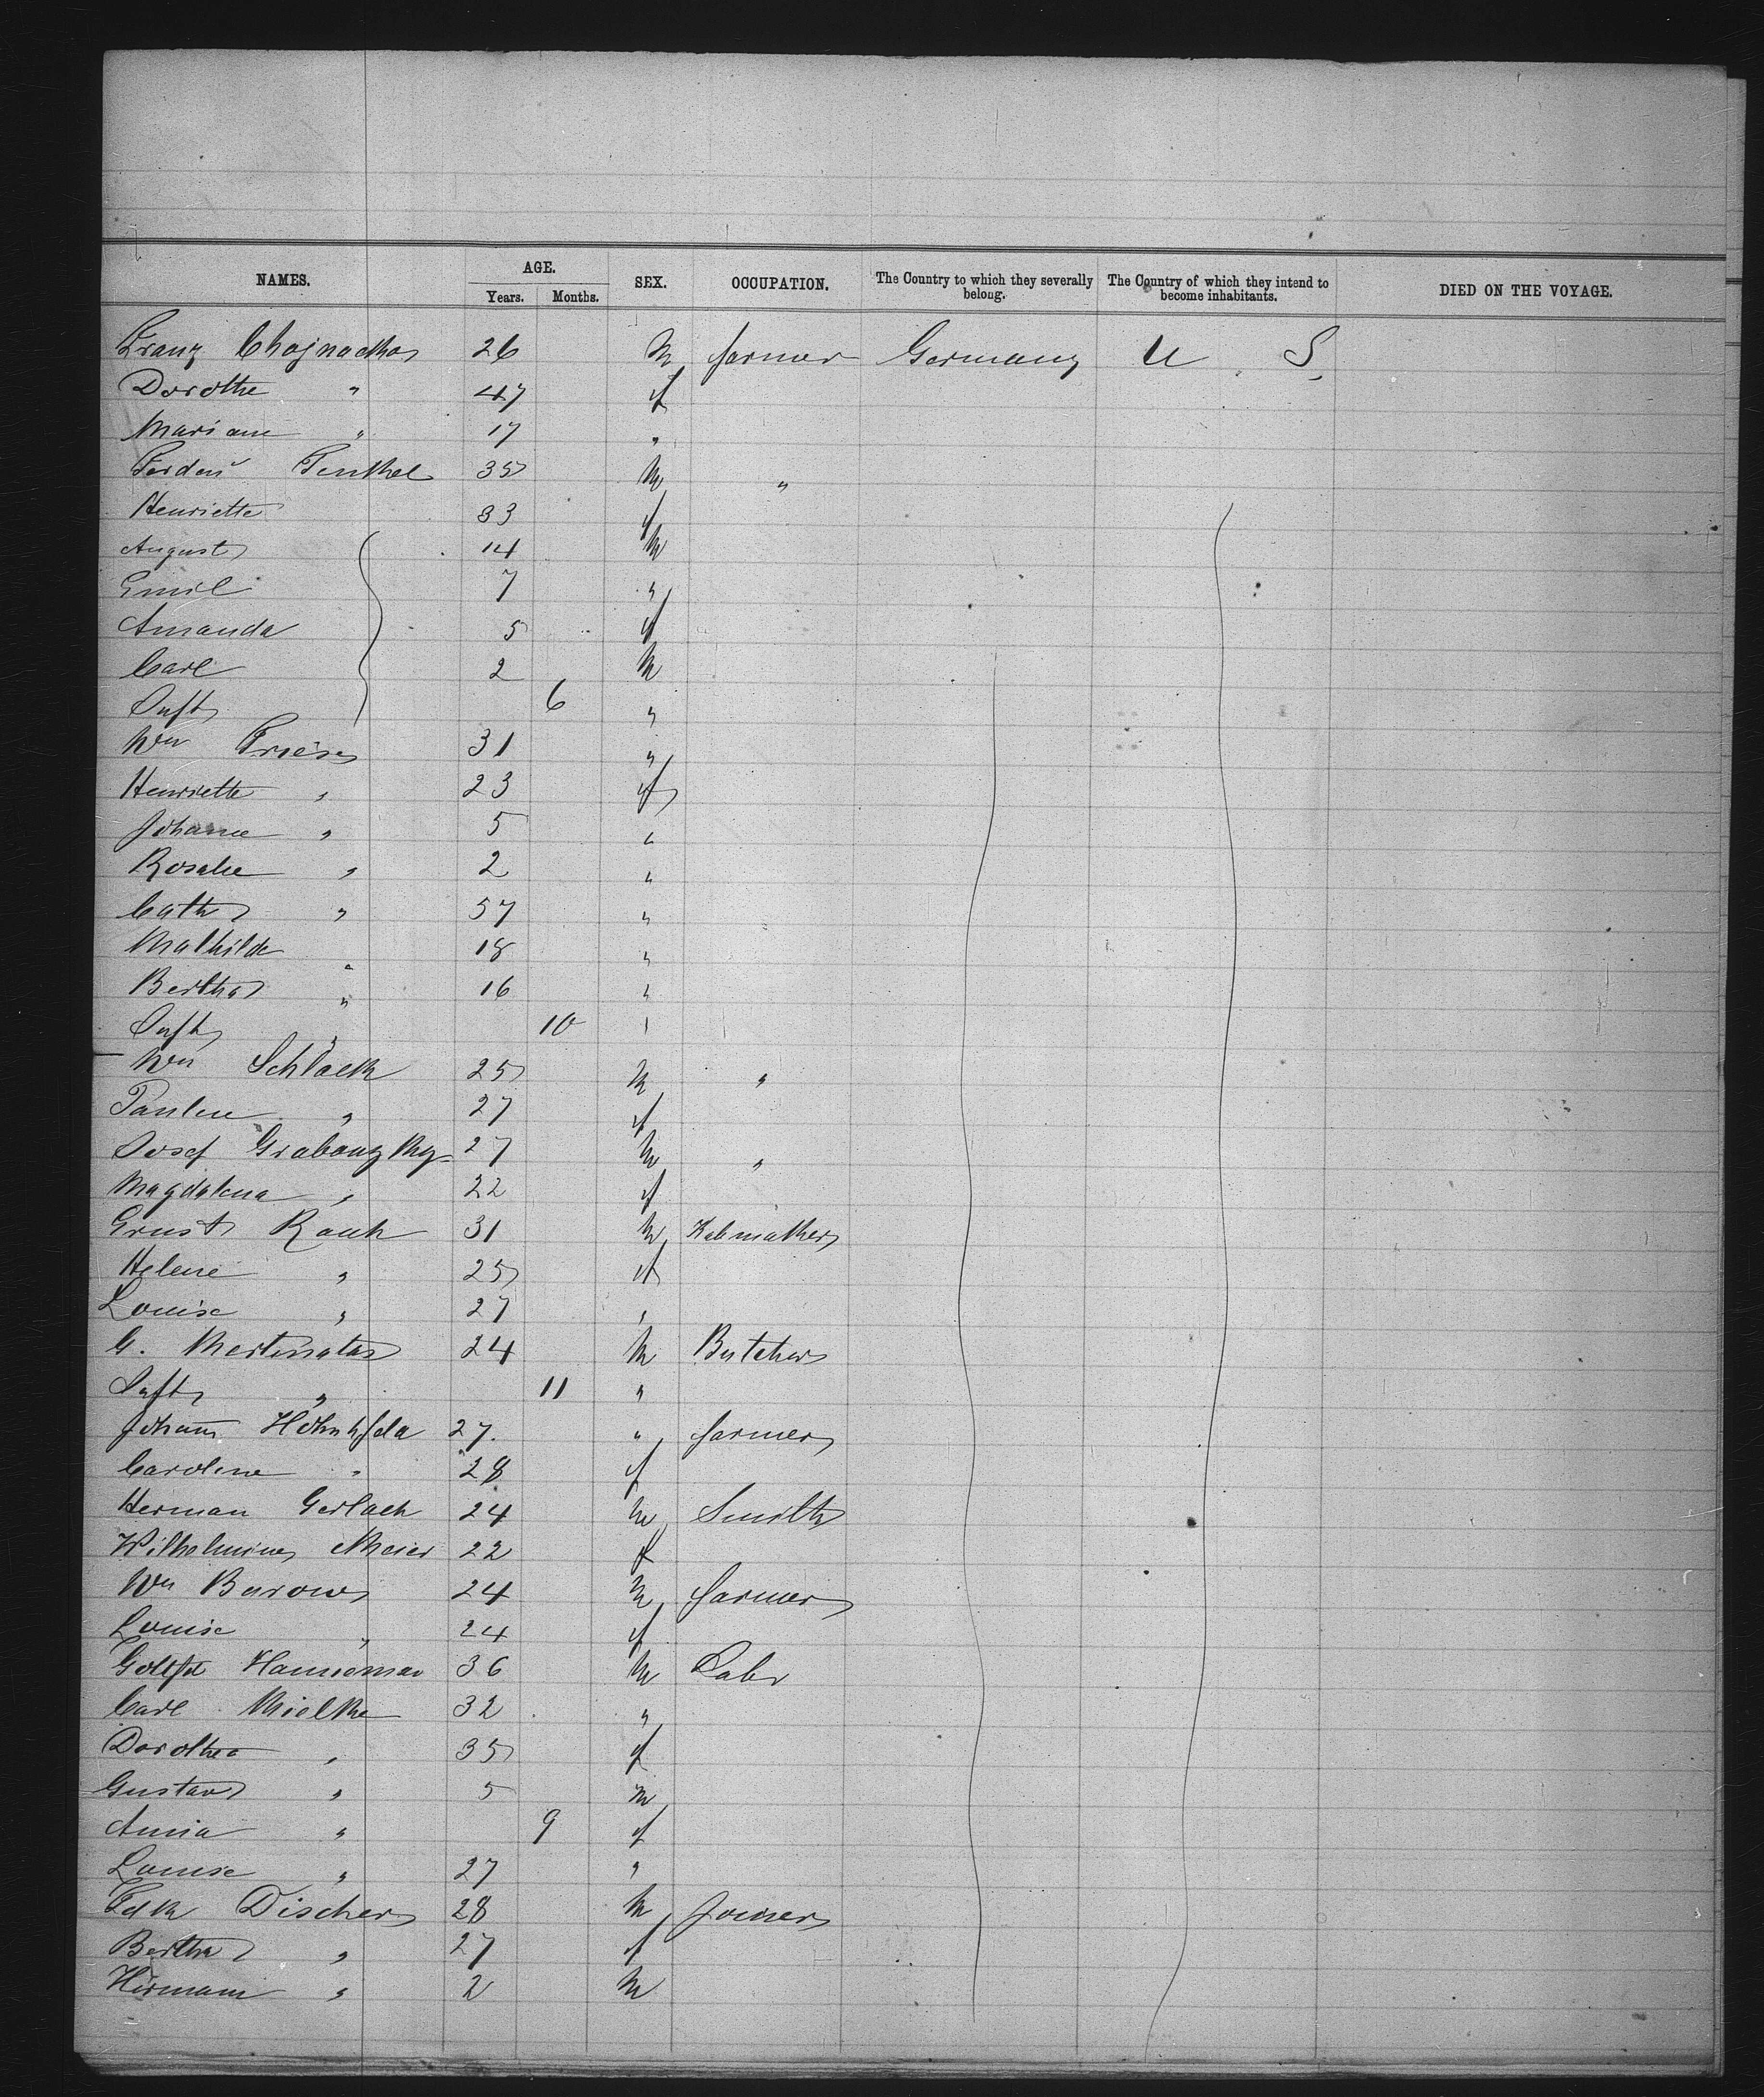 NAMES. AGE. SEX. OCCUPATION. The Country to which they severally belong. The Country of which they intend to become inhabitants. DIED ON THE VOYAGE.
Years. Months.
Franz Chojnacka 26 M farmer Germany U S
Dorothe " 47 f
Mariane " 17 "
Ferden Tenkhel 35 M "
Henriette 33 f
August 14 M
Emil 7 "
Amanda 5 f
Carl 2 M
Inft 6 "
Wm Friese 31 "
Henriette " 23 f
Johanne " 5 "
Rosalie " 2 "
Cath " 57 "
Mathilde " 18 "
Bertha " 16 "
Inft " 10 "
Wm Schlack 25 M "
Pauline " 27 f
Josef Grabouzky 27 M "
Magdalena " 22 f
Ernst Rauh 31 M Kabmaker
Helene " 25 f
Louise " 27 "
G. 24 M Butcher
Inft " 11 "
Johann 27. " farmer
Caroline " 28 f
Herman Gerlach 24 M Smith
Wilhelmine Meier 22 f
Wm Burow 24 M farmer
Louise " 24 f
Gottfd Hanneman 36 M Labr
Carl Mielke 32 "
Dorothea " 35 f
Gustav " 5 M
Annia " 9 f
Louise " 27 "
Fdk Discher 28 M Joiner
Bertha " 27 f
Hermann " 2 M